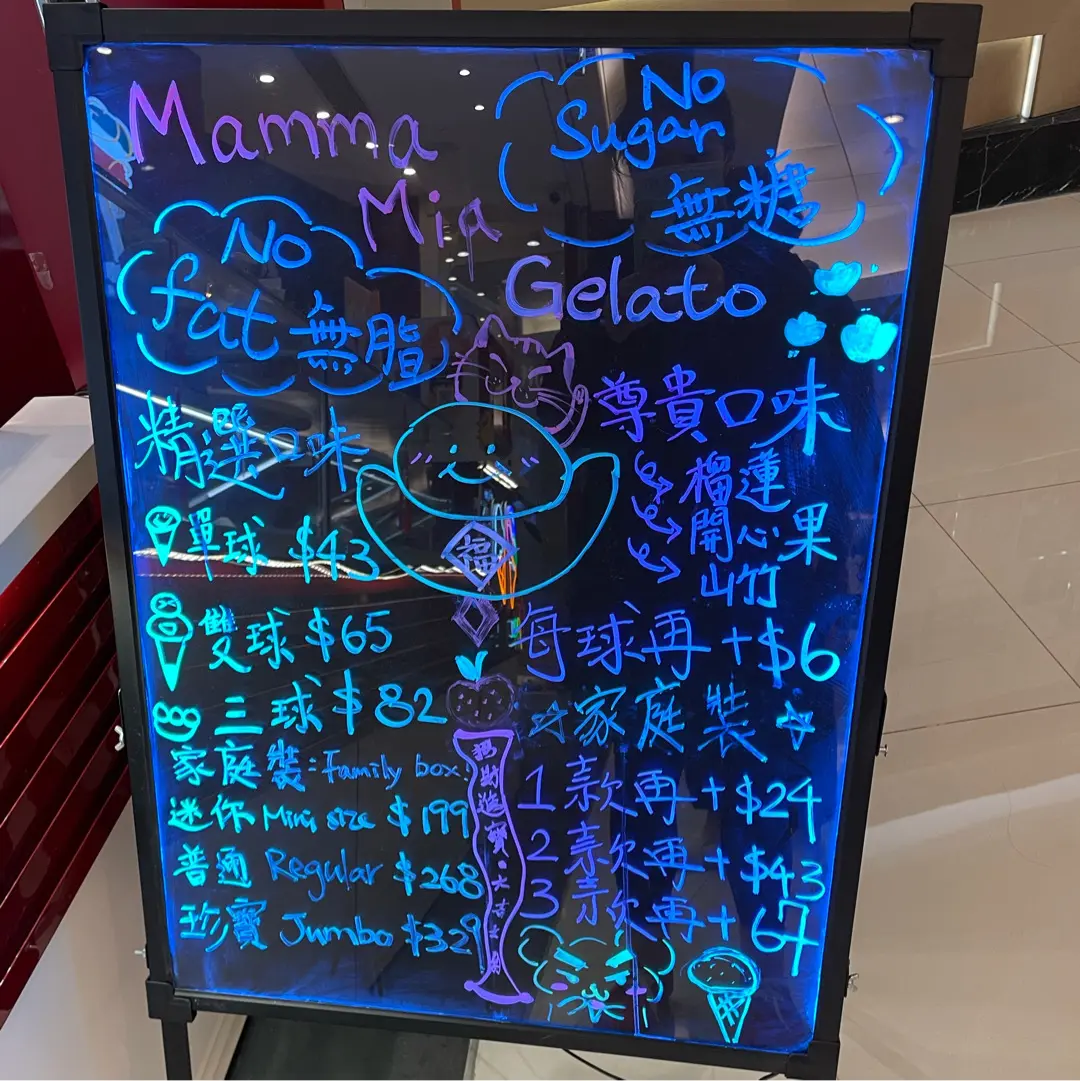 Mamma
Mia
Gelato
No
Sugar
無糖
No
fat 無脂
精選口味
單球 $43
雙球 $65
三球 $82
家庭裝:Family box:
迷你 Mini size $199
普通 Regular $268
珍寶 Jumbo $329
福
招財進寶
尊貴口味
榴蓮
開心果
山竹
每球再+$6
☆家庭裝☆
1款再+$24
2款再+$43
3款再+67